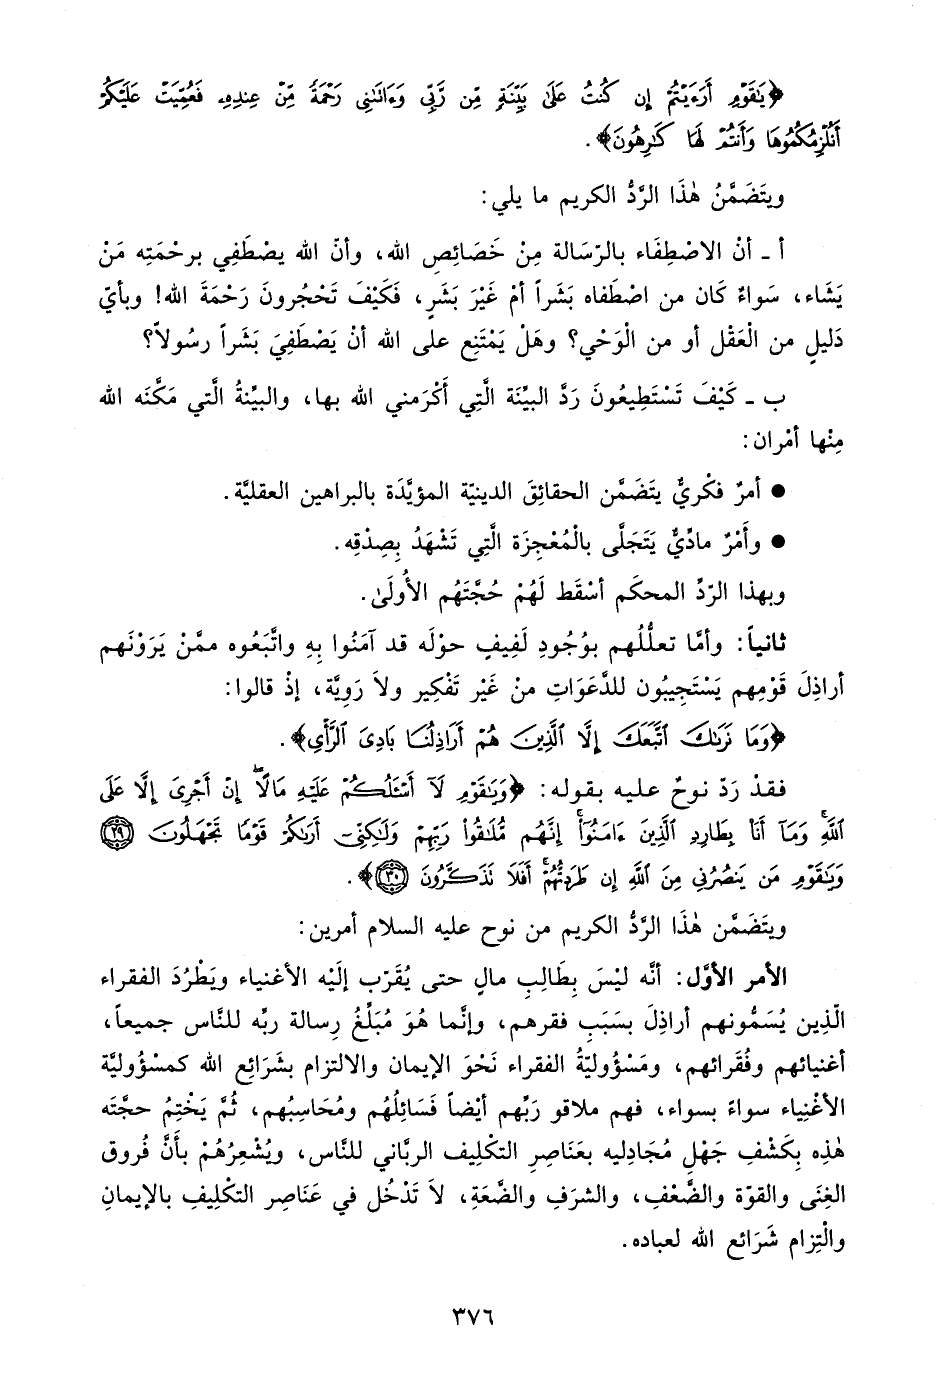 ﴿يَٰقَوْمِ أَرَءَيْتُمْ إِن كُنتُ عَلَىٰ بَيِّنَةٍ مِّن رَّبِّي وَءَاتَىٰنِي رَحْمَةً مِّنْ عِندِهِۦ فَعُمِّيَتْ عَلَيْكُمْ
أَنُلْزِمُكُمُوهَا وَأَنتُمْ لَهَا كَٰرِهُونَ﴾ .
ويتَضَمَّنُ هٰذَا الرَّدُّ الكريم ما يلي:
أ ـ أنْ الاصْطِفَاء بالرّسَالة مِنْ خَصَائِصِ الله، وأنّ الله يصْطَفِي برحْمَتِه مَنْ
يَشَاء، سَواءٌ كَان من اصْطَفاه بَشَراً أمْ غَيْرَ بَشَرٍ، فَكَيْفَ تَحْجُرونَ رَحْمَةَ الله! وبأيّ
دَليلٍ من الْعَقْل أو من الْوَحْي؟ وهَلْ يَمْتَنِع على الله أنْ يَصْطَفِيَ بَشَراً رسُولاً؟
ب ـ كَيْفَ تَسْتَطِيعُونَ رَدَّ البيِّنَة الَّتِي أكْرَمني الله بها، والبيِّنةُ الَّتي مَكَّنَه الله
مِنْها أمْران:
● أمرٌ فكْريٌّ يتَضَمَّن الحقائِقَ الدينيّة المؤيَّدَة بالبراهين العقليَّة.
● وأَمْرٌ مادِّيٌّ يَتَجَلَّى بالْمُعْجِزَة الَّتِي تَشْهَدُ بِصِدْقِه.
وبهذا الرّدِّ المحكَم أسْقَط لَهُمْ حُجَّتَهُم الأُولَىٰ.
ثانياً: وأمَّا تعلُّلُهم بوُجُودِ لَفِيفٍ حوْلَه قد آمَنُوا بِهِ واتَّبَعُوه ممَّنْ يَرَوْنَهم
أراذِلَ قَوْمِهم يَسْتَجِيبُون للدَّعَوَاتِ منْ غَيْر تَفْكِير ولاَ رَوِيَّة، إذْ قالوا:
﴿وَمَا نَرَىٰكَ ٱتَّبَعَكَ إِلَّا ٱلَّذِينَ هُمْ أَرَاذِلُنَا بَادِىَ ٱلرَّأْىِ﴾ .
فقدْ رَدّ نوحٌ عليه بقوله: ﴿وَيَٰقَوْمِ لَآ أَسْـَٔلُكُمْ عَلَيْهِ مَالًا ۖ إِنْ أَجْرِىَ إِلَّا عَلَى
ٱللَّهِ ۚ وَمَآ أَنَا۠ بِطَارِدِ ٱلَّذِينَ ءَامَنُوٓا۟ ۚ إِنَّهُم مُّلَٰقُوا۟ رَبِّهِمْ وَلَٰكِنِّىٓ أَرَىٰكُمْ قَوْمًا تَجْهَلُونَ ٢٩
وَيَٰقَوْمِ مَن يَنصُرُنِى مِنَ ٱللَّهِ إِن طَرَدتُّهُمْ ۚ أَفَلَا تَذَكَّرُونَ ٣٠﴾ .
ويتَضَمَّن هٰذَا الرَّدُّ الكريم من نوح عليه السلام أمرين:
الأمر الأوَّل: أنَّه ليْسَ بِطَالِبِ مالٍ حتى يُقَرّب إلَيْه الأغنياء ويَطْرُدَ الفقراء
الّذِين يُسَمُّونهم أراذِلَ بسَبَبِ فقرهم، وإنَّما هُوَ مُبَلِّغُ رِسالة ربِّه للنَّاس جميعاً،
أغنيائهم وفُقَرائهم، ومَسْؤوليّةُ الفقراء نَحْوَ الإيمان والالتزام بشَرَائِعِ الله كمسؤوليَّة
الأغْنِياء سواءً بسواء، فهم ملاقو رَبِّهم أيْضاً فَسَائِلُهُم ومُحَاسِبُهم، ثُمَّ يَخْتِمُ حجَّتَه
هٰذِه بِكَشْفِ جَهْلِ مُجَادِليه بعَنَاصِرِ التكْلِيف الربَّاني للنَّاس، ويُشْعِرُهُمْ بأَنَّ فُروق
الغِنَى والقوّة والضَّعْفِ، والشرَفِ والضَّعَةِ، لاَ تَدْخُل في عَنَاصر التكْلِيفِ بالإيمانِ
والْتِزام شَرَائع الله لعباده.
٣٧٦